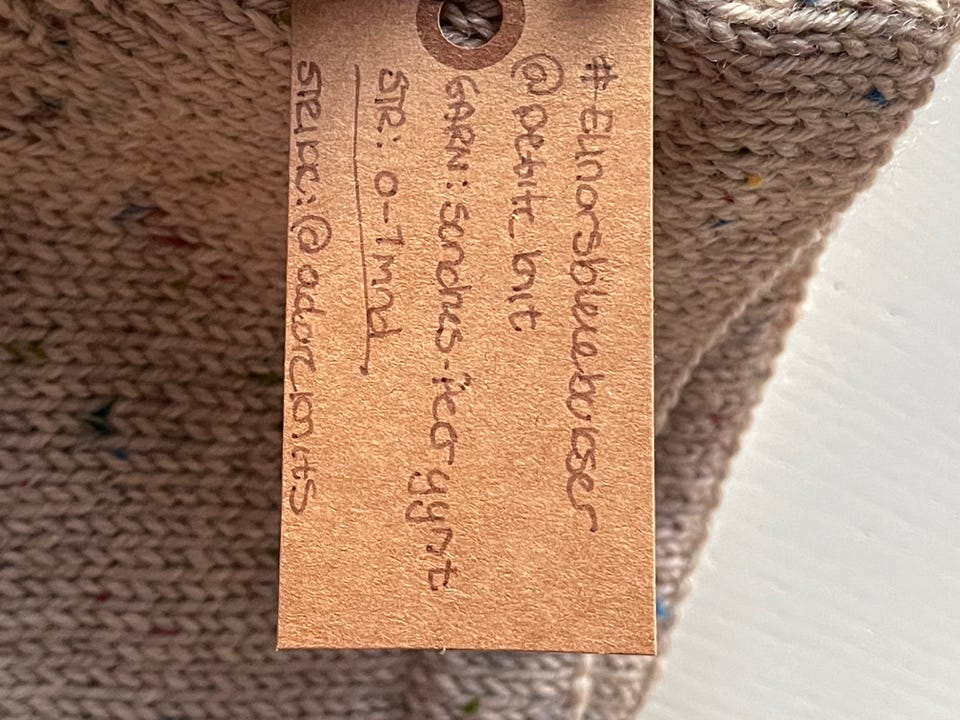 #Elinorsbleiebukser
@petiteknit
GARN: Sandnes - Peer gynt
STR: 0-1 mnd.
STRIKK: @adore_knits